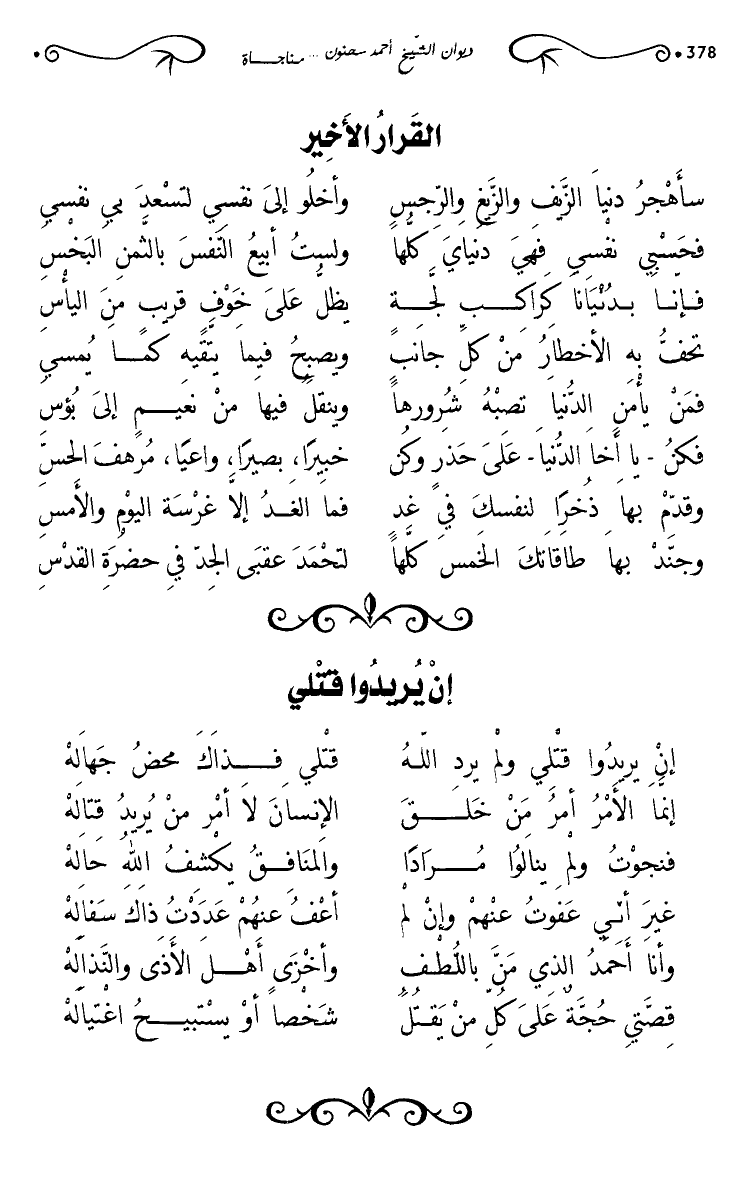 378 ديوان الشّيخ أحمد سحنون ... مناجـــاة
القَرارُ الأَخِير
سأَهْجرُ دنياَ الزَّيفِ والزَّيغِ والرّجسِ وأخلُو إلىَ نفسِي لتسْعدَ بيِ نفسِي
فحَسْبيِ نفْسيِ فهِيَ دنيايَ كلُّها ولستُ أبيعُ النَّفسَ بالثّمنِ البَخْسِ
فـإنـا بـدُنْيَانا كَراكــبِ لُجــة يظلُّ عَلىَ خَوْفٍ قريبٍ منَ اليأْسِ
تحفُّ بِه الأخطارُ منْ كلِّ جانبٍ ويصبحُ فيما يتّقيه كمــا يُمسيِ
فمَنْ يأْمنِ الدُّنيا تصبْهُ شُرورهاَ وينقلُ فيها منْ نعيــمٍ إلىَ بُؤسِ
فكنْ - يا أخاَ الدُّنياَ - عَلىَ حَذرٍ وكنْ خبيرًا، بصيرًا، واعيًا، مُرْهفَ الحسِّ
وقدّمْ بها ذُخرًا لنفسكَ فيِ غدٍ فما الغــدُ إلاَّ غرْسَة اليوْمِ والأَمسِ
وجنّدْ بها طاقاتكَ الخمسَ كلَّهاَ لتحْمَدَ عقبَى الجدّ فيِ حضرَةِ القدْسِ
إنْ يُريدُوا قتْلي
إنْ يريدُوا قتْلي ولمْ يردِ اللّـهُ قتْلي فــــذاكَ محضُ جَهالهْ
إنمَّا الأمْرُ أمرُ مَنْ خَلــــقَ الإنسانَ لاَ أمْر منْ يُريدُ قتَالهْ
فنجوْتُ ولمْ ينالُوا مُــــرادًا والمنَافــقُ يكْشفُ اللهُ حالهْ
غيرَ أنّـي عَفوتُ عنهمْ وإنْ لمْ أعْفُ عنهُمْ عَدَدْتُ ذاكَ سَفالهْ
وأنا أحمَدُ الذي مَنَّ باللُّطفِ وأخْزَى أهْــلَ الأذَى والنَّذالهْ
قصَّتي حُجةٌ عَلىَ كلِّ منْ يَقتلُ شَخْصاً أوْ يسْتبيــــحُ اغْتيالهْ